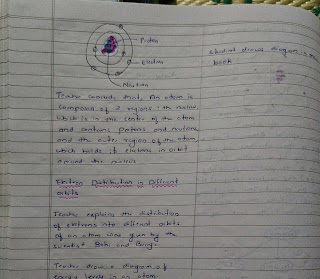 Proton
Electron
Neutron
Student draws diagram in the
book
Teacher concludes that, An atom is
composed of 2 regions : the nucleus,
which is in the center of the atom
and contains protons and neutrons,
and the outer region of the atom,
which holds its electrons in orbit
around the nucleus
Electron Distribution in Different
orbits
Teacher explains the distribution
of electrons into different orbits
of an atom were given by the
scientist Bohr and Bury's
Teacher draws a diagram of
energy levels in an atom